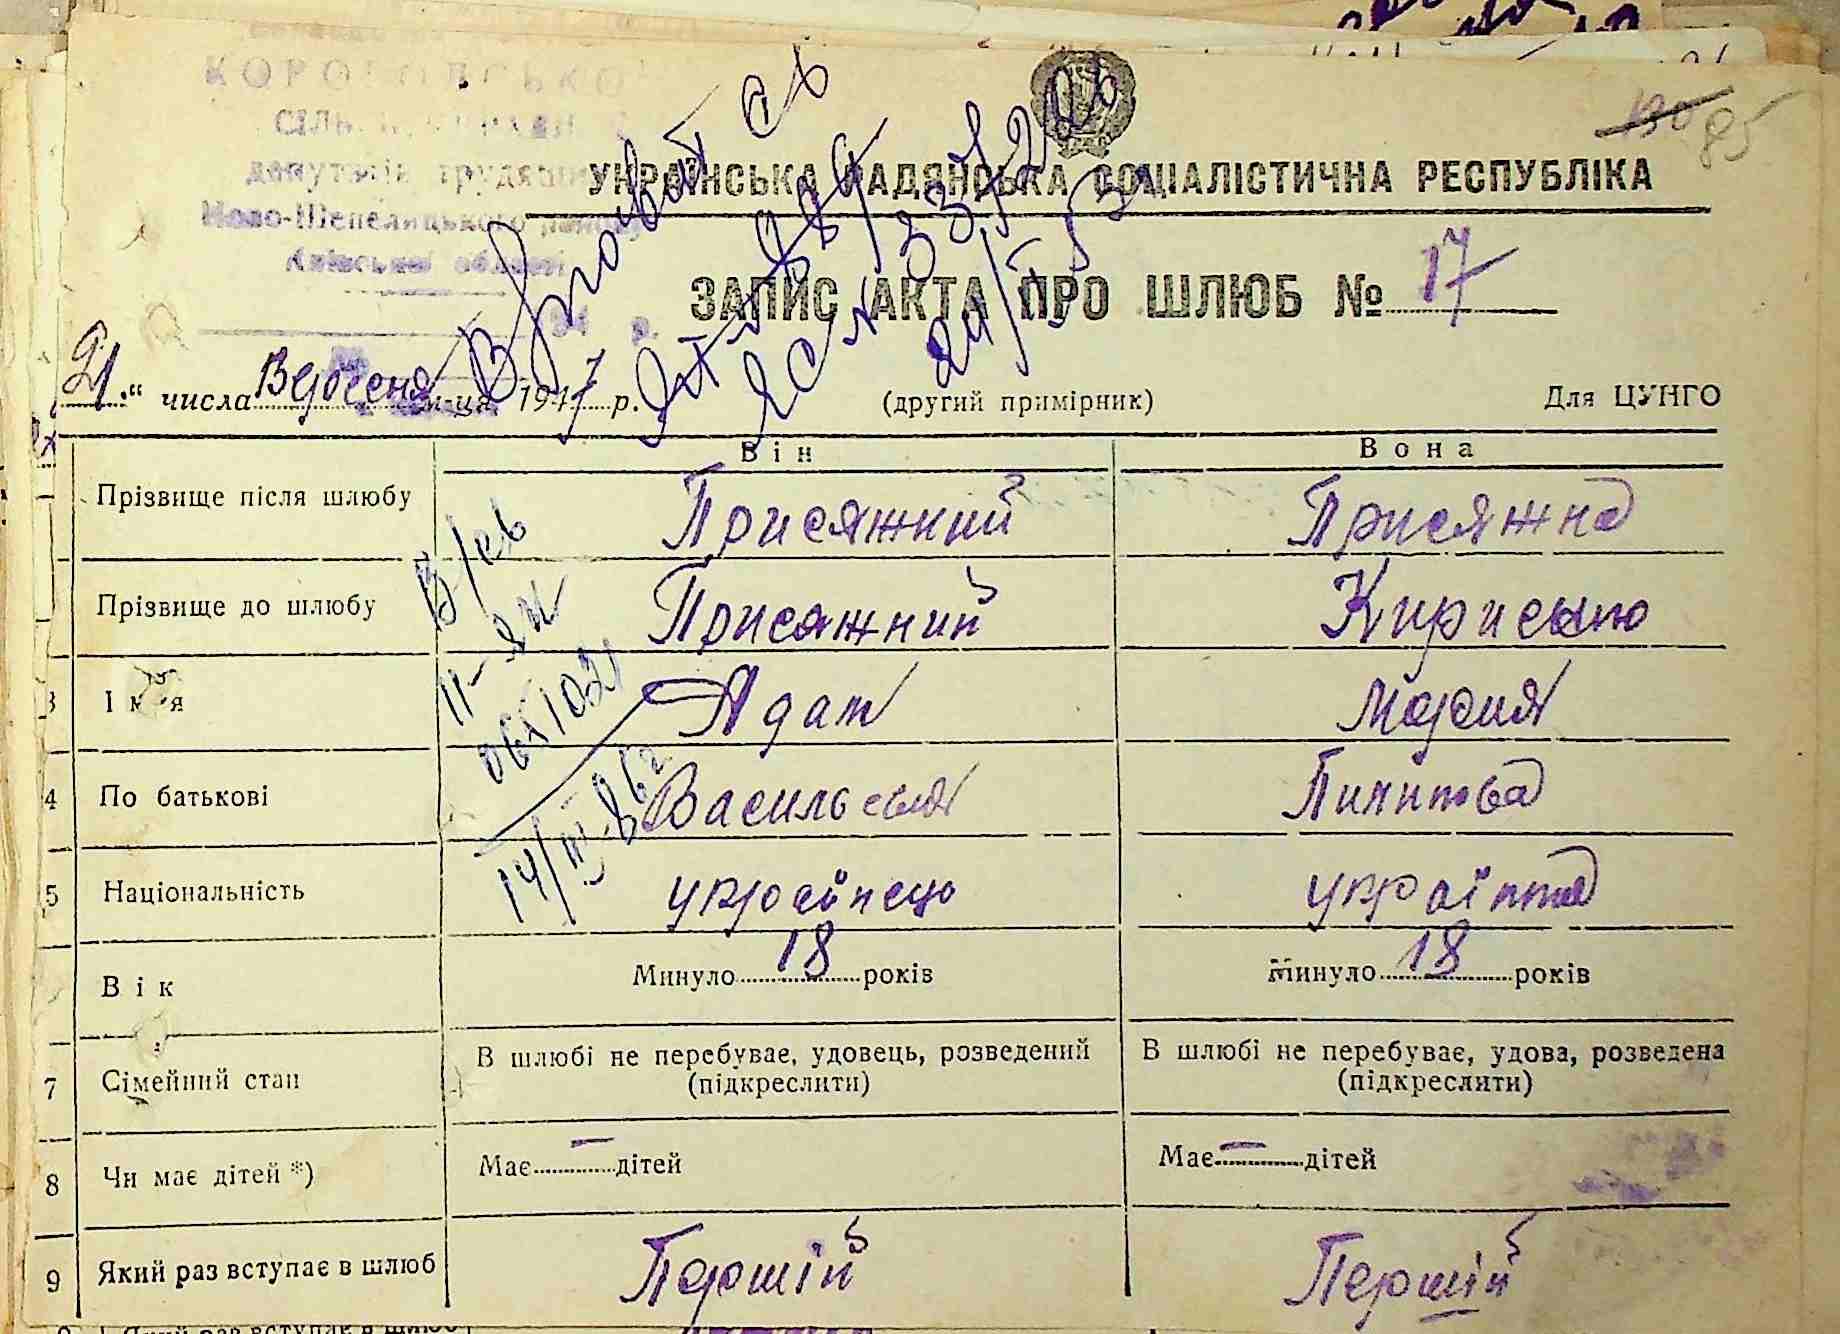 КОРОГОДСЬКОЇ
депутатів трудящих
Ново-Шепелицького району
Київської області
130 85
УКРАЇНСЬКА РАДЯНСЬКА СОЦІАЛІСТИЧНА РЕСПУБЛІКА
ЗАПИС АКТА ПРО ШЛЮБ № 17
21 “ числа Вересня м-ця 1947 р. (другий примірник) Для ЦУНГО
Він Вона
Прізвище після шлюбу Присяжний Присяжна
Прізвище до шлюбу Присяжний
3 Ім'я Адам Мария
4 По батькові Пилипова
5 Національність українець
Вік Минуло 18 років Минуло 18 років
7 Сімейний стан В шлюбі не перебуває, удовець, розведений В шлюбі не перебуває, удова, розведена
(підкреслити) (підкреслити)
8 Чи має дітей *) Має — дітей Має — дітей
9 Який раз вступає в шлюб Першій Першій